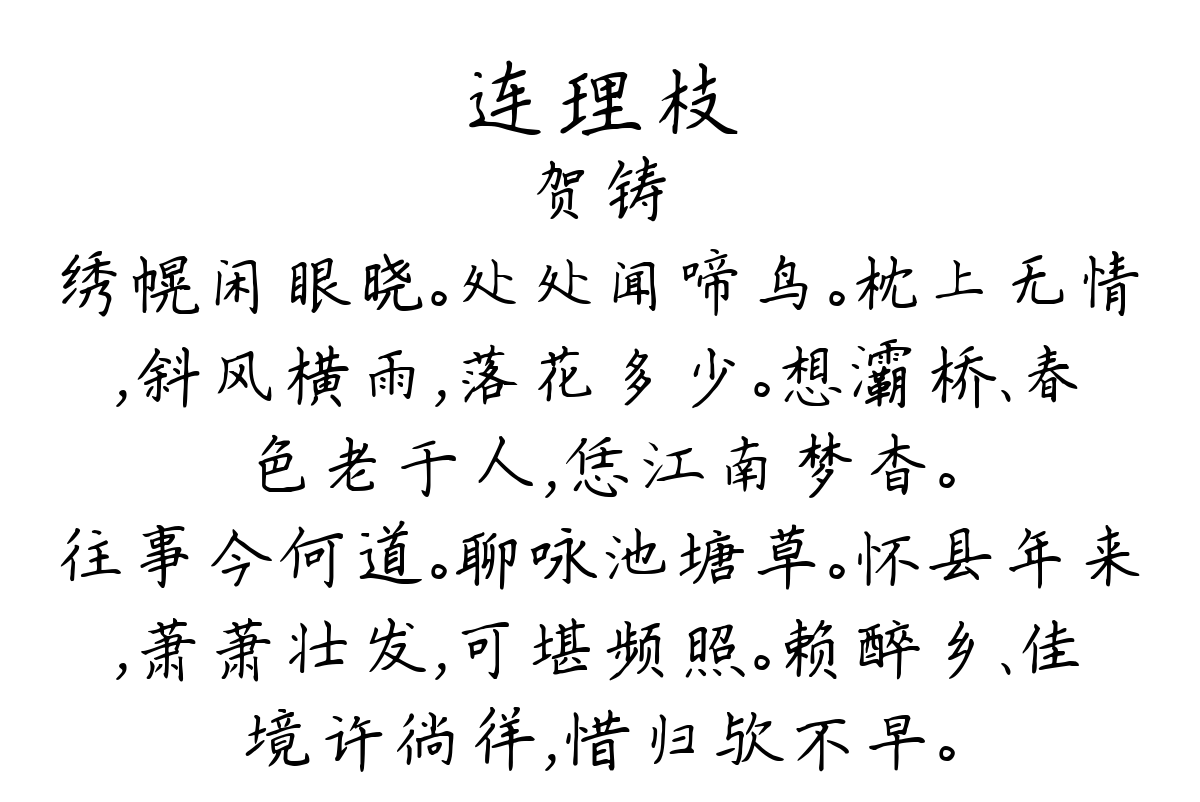 连理枝
贺铸
绣幌闲眼晓。处处闻啼鸟。枕上无情
,斜风横雨,落花多少。想灞桥、春
色老于人,恁江南梦杳。
往事今何道。聊咏池塘草。怀县年来
,萧萧壮发,可堪频照。赖醉乡、佳
境许徜徉,惜归欤不早。